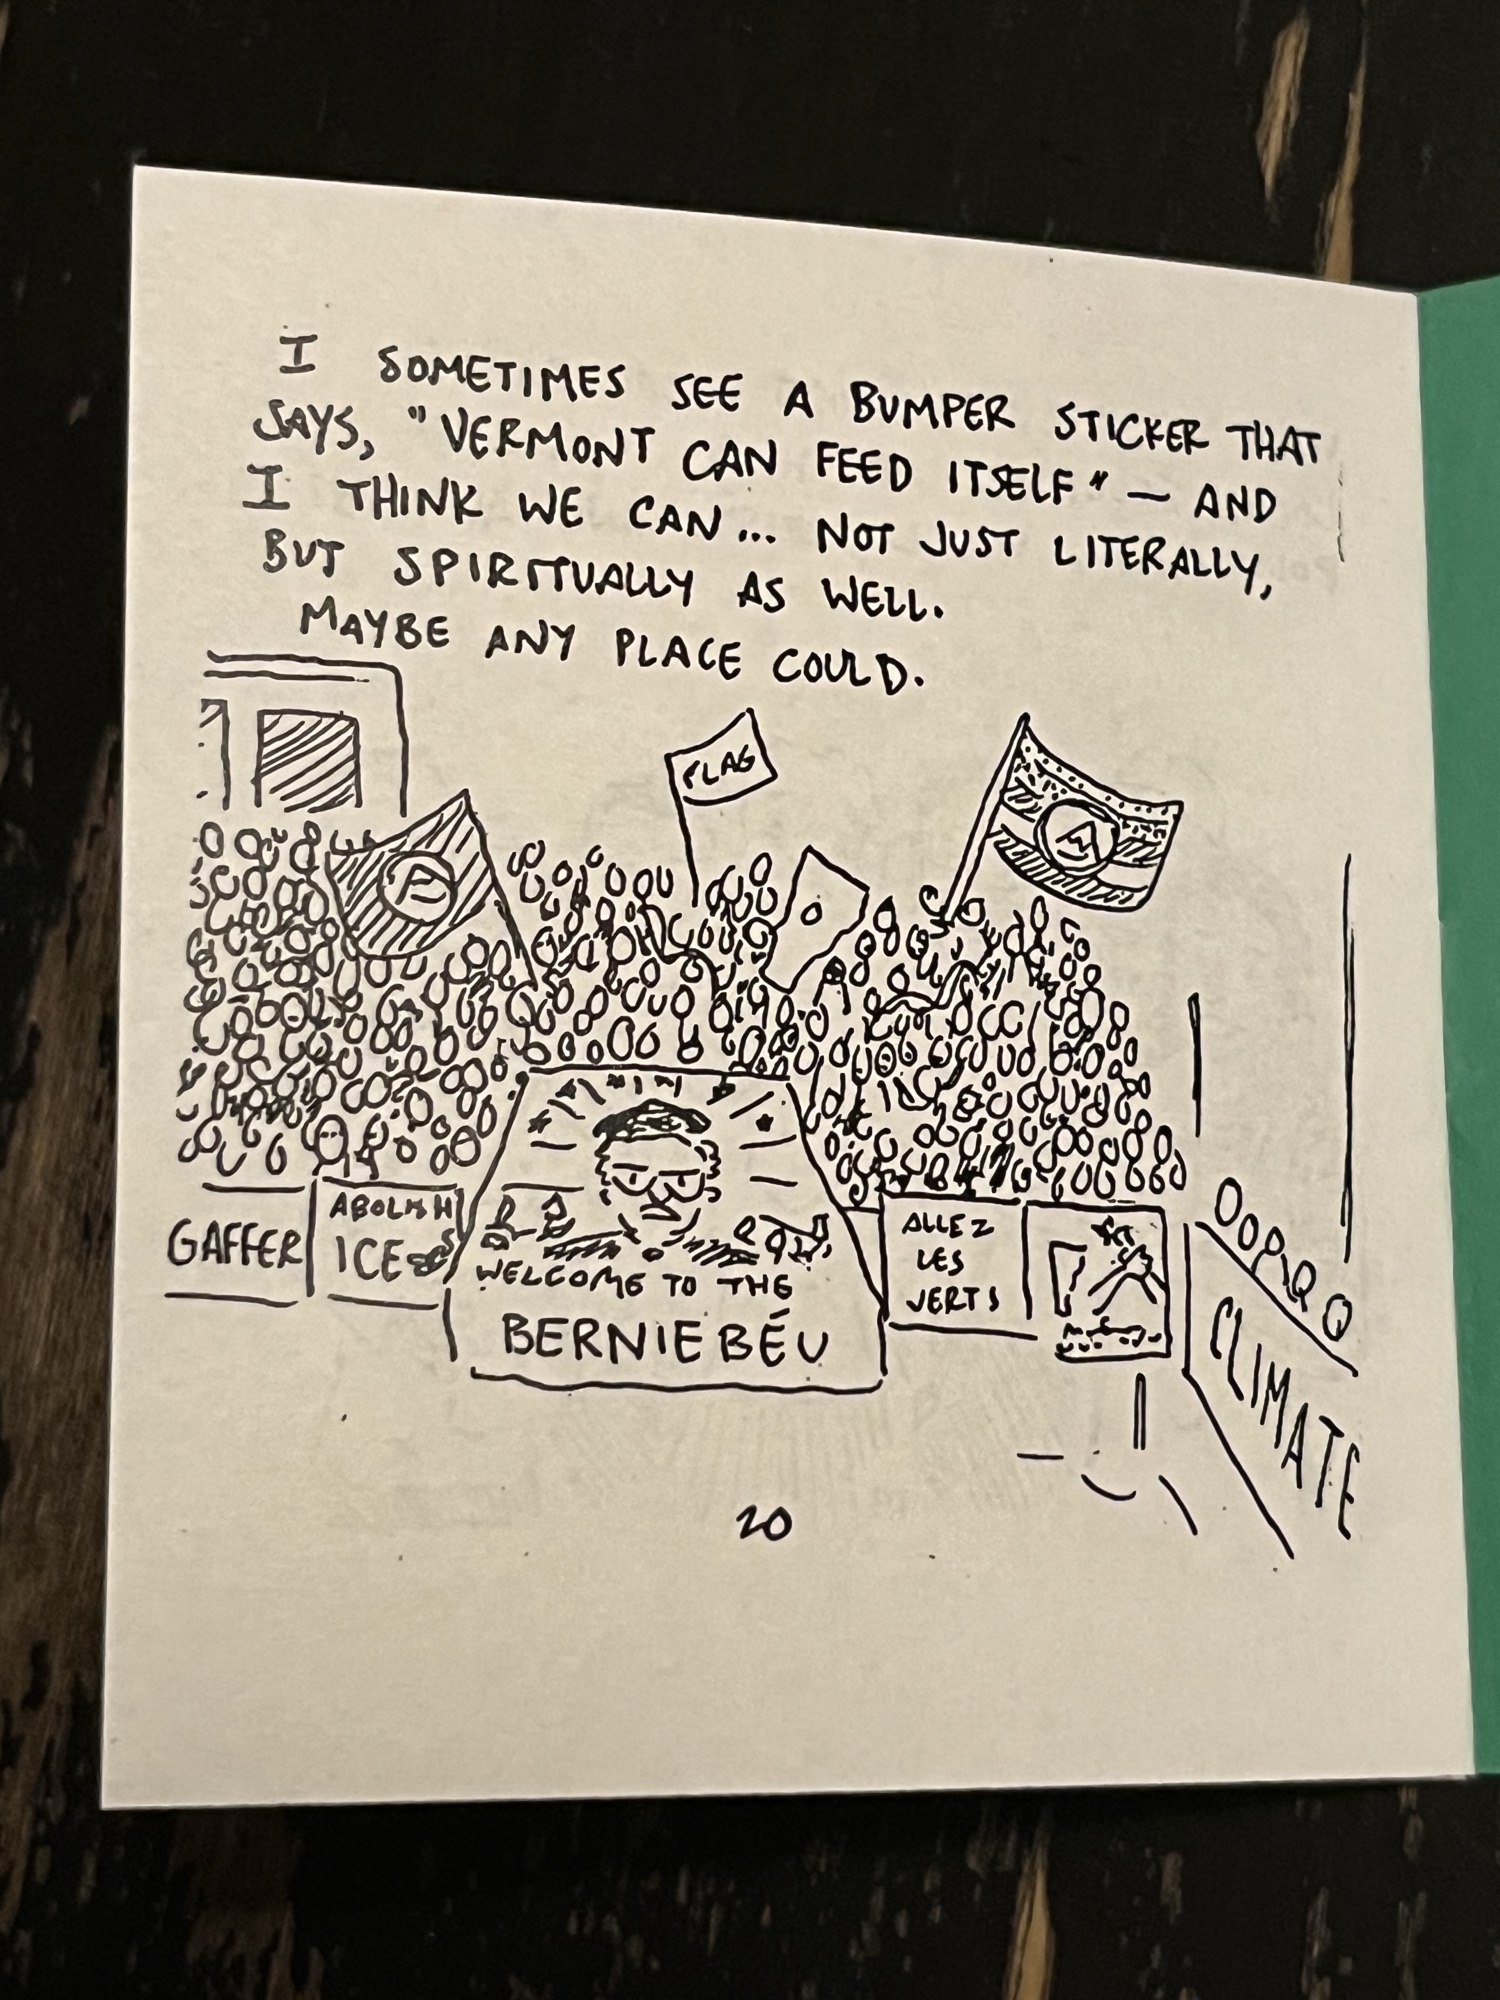 I SOMETIMES SEE A BUMPER STICKER THAT
SAYS, "VERMONT CAN FEED ITSELF" — AND
I THINK WE CAN... NOT JUST LITERALLY,
BUT SPIRITUALLY AS WELL.
MAYBE ANY PLACE COULD.
FLAG
GAFFER
ABOLISH
ICE
WELCOME TO THE
BERNIEBÉU
ALLEZ
LES
VERTS
CLIMATE
20